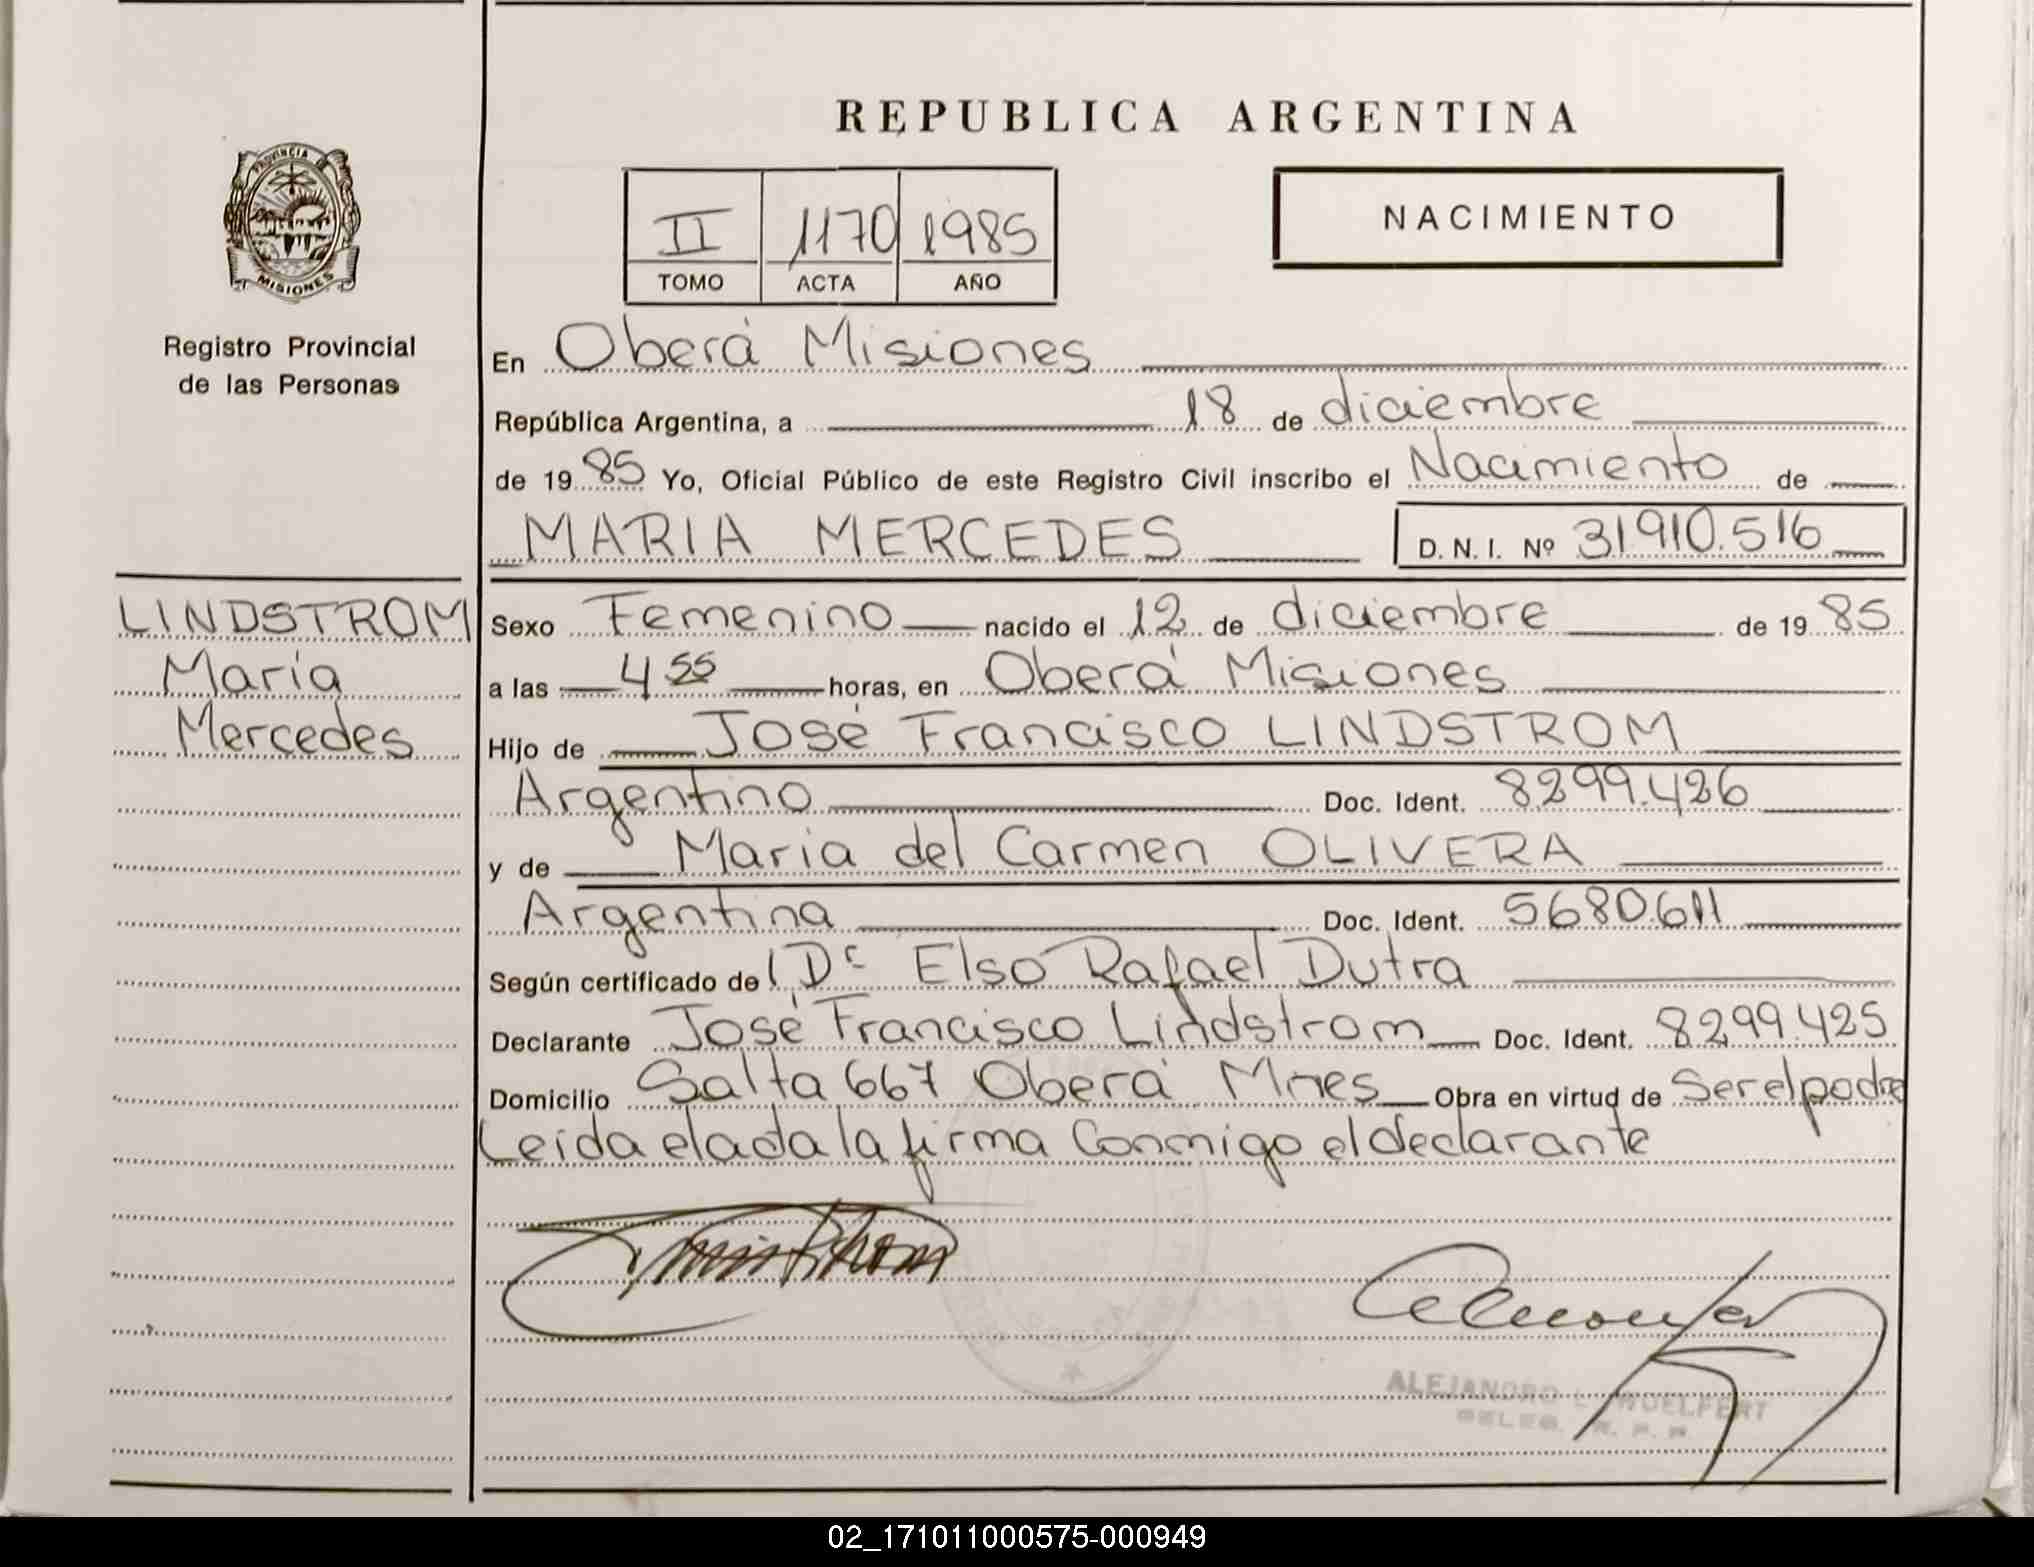 REPUBLICA ARGENTINA
PROVINCIA DE
MISIONES
Registro Provincial
de las Personas
II 1170 1985
TOMO ACTA AÑO
NACIMIENTO
En Oberá Misiones
República Argentina, a 18 de diciembre
de 1985 Yo, Oficial Público de este Registro Civil inscribo el Nacimiento de
MARIA MERCEDES D. N. I. Nº 31910.516
LINDSTROM
María
Mercedes
Sexo Femenino nacido el 12 de diciembre de 1985
a las 4 55 horas, en Oberá Misiones
Hijo de José Francisco LINDSTROM
Argentino Doc. Ident. 8299.426
y de Maria del Carmen OLIVERA
Argentina Doc. Ident. 5680.611
Según certificado de Dr Elso Rafael Dutra
Declarante José Francisco Lindstrom Doc. Ident. 8299.425
Domicilio Salta 667 Oberá Mnes Obra en virtud de Ser el padre
Leida el acta la firma Conmigo el declarante
ALEJANDRO L. WOELFERT
DELEG. R. P. P.
02_171011000575-000949